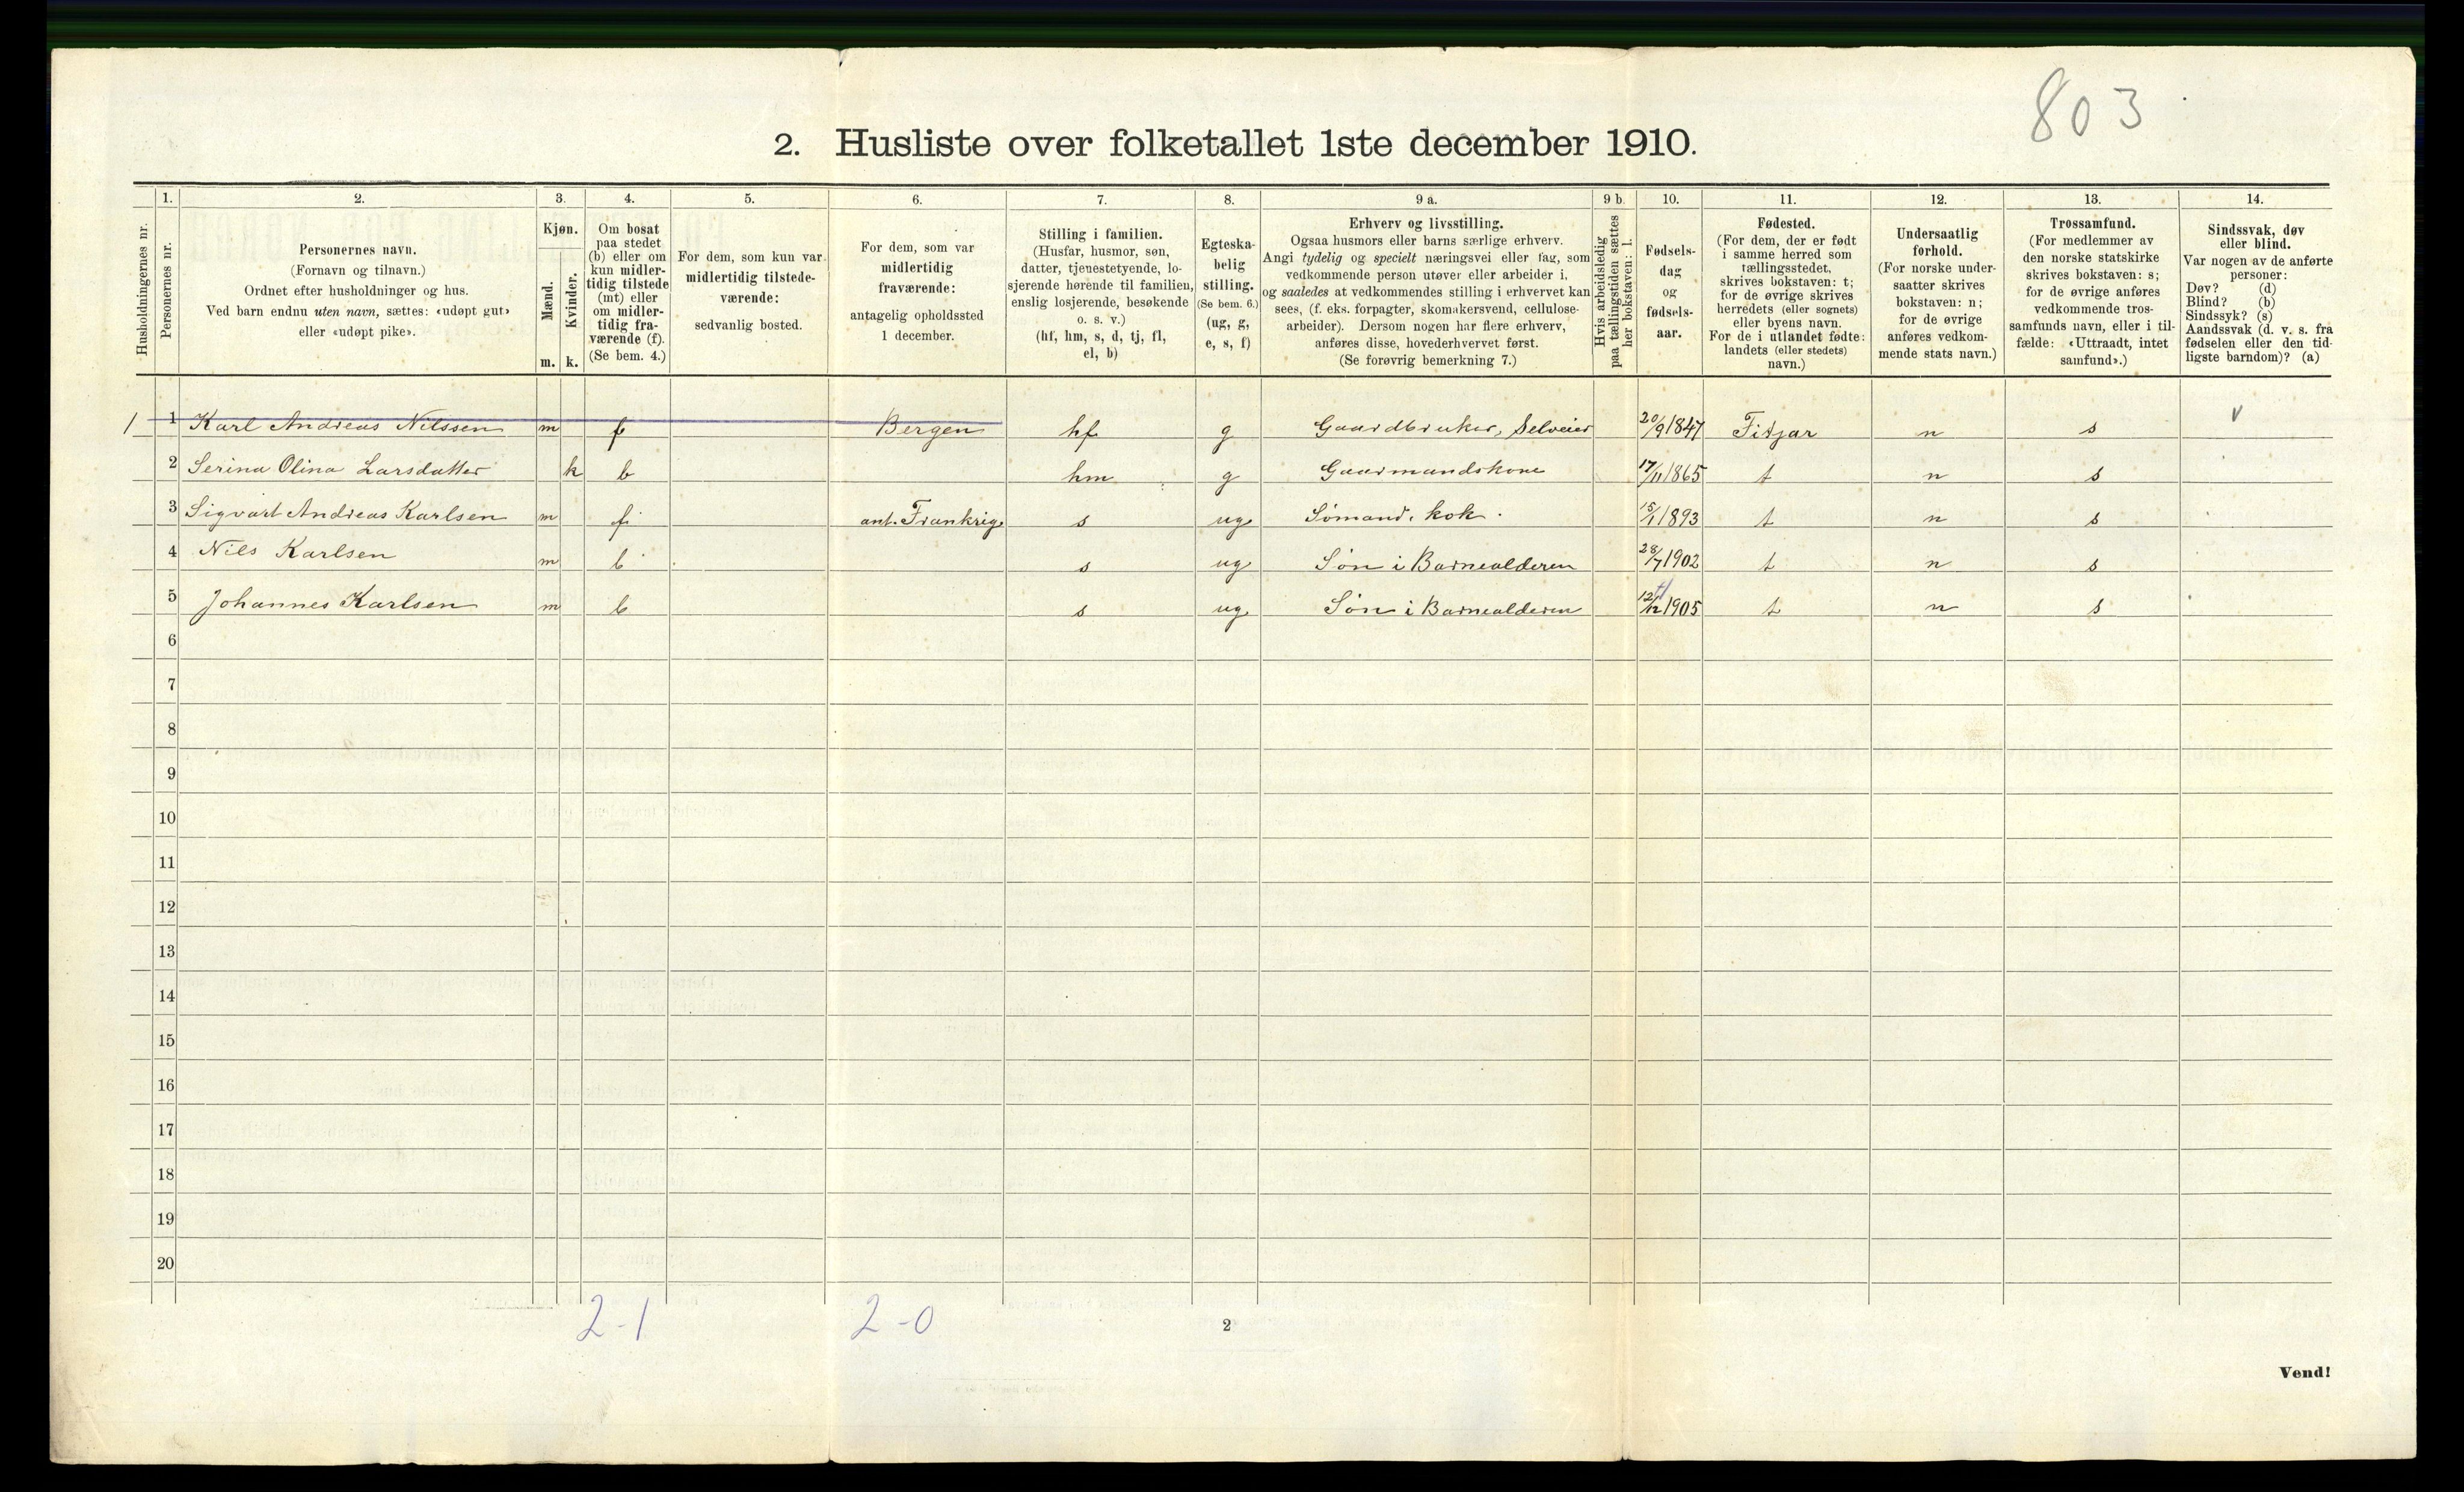 803
2. Husliste over folketallet 1ste december 1910.
Husholdningernes nr.
1.
Personernes nr.
2.
Personernes navn.
(Fornavn og tilnavn.)
Ordnet efter husholdninger og hus.
Ved barn endnu uten navn, sættes: «udøpt gut»
eller «udøpt pike».
3.
Kjøn.
Mænd.
Kvinder.
m. k.
4.
Om bosat
paa stedet
(b) eller om
kun midler-
tidig tilstede
(mt) eller
om midler-
tidig fra-
værende (f).
(Se bem. 4.)
5.
For dem, som kun var
midlertidig tilstede-
værende:
sedvanlig bosted.
6.
For dem, som var
midlertidig
fraværende:
antagelig opholdssted
1 december.
7.
Stilling i familien.
(Husfar, husmor, søn,
datter, tjenestetyende, lo-
sjerende hørende til familien,
enslig losjerende, besøkende
o. s. v.)
(hf, hm, s, d, tj, fl,
el, b)
8.
Egteska-
belig
stilling.
(Se bem. 6.)
(ug, g,
e, s, f)
9 a.
Erhverv og livsstilling.
Ogsaa husmors eller barns særlige erhverv.
Angi tydelig og specielt næringsvei eller fag, som
vedkommende person utøver eller arbeider i,
og saaledes at vedkommendes stilling i erhvervet kan
sees, (f. eks. forpagter, skomakersvend, cellulose-
arbeider). Dersom nogen har flere erhverv,
anføres disse, hovederhvervet først.
(Se forøvrig bemerkning 7.)
9 b.
Hvis arbeidsledig
paa tællingstiden sættes
her bokstaven: l.
10.
Fødsels-
dag
og
fødsels-
aar.
11.
Fødested.
(For dem, der er født
i samme herred som
tællingsstedet,
skrives bokstaven: t;
for de øvrige skrives
herredets (eller sognets)
eller byens navn.
For de i utlandet fødte:
landets (eller stedets)
navn.)
12.
Undersaatlig
forhold.
(For norske under-
saatter skrives
bokstaven: n;
for de øvrige
anføres vedkom-
mende stats navn.)
13.
Trossamfund.
(For medlemmer av
den norske statskirke
skrives bokstaven: s;
for de øvrige anføres
vedkommende tros-
samfunds navn, eller i til-
fælde: «Uttraadt, intet
samfund».)
14.
Sindssvak, døv
eller blind.
Var nogen av de anførte
personer:
Døv? (d)
Blind? (b)
Sindssyk? (s)
Aandssvak (d. v. s. fra
fødselen eller den tid-
ligste barndom)? (a)
1 1 Karl Andreas Nilssen m f Bergen hf g Gaardbruker, Selveier 20/9 1847 Fitjar n s v
2 Serina Olina Larsdatter k b hm g Gaarmandskone 17/11 1865 t n s
3 Sigvart Andreas Karlsen m f ant. Frankrig s ug Sømand, kok. 15/1 1893 t n s
4 Nils Karlsen m b s ug Søn i Barnealderen 28/7 1902 t n s
5 Johannes Karlsen m b s ug Søn i Barnealderen 12/12 1905 t n s
6
7
8
9
10
11
12
13
14
15
16
17
18
19
20
2-1 2-0
2
Vend!